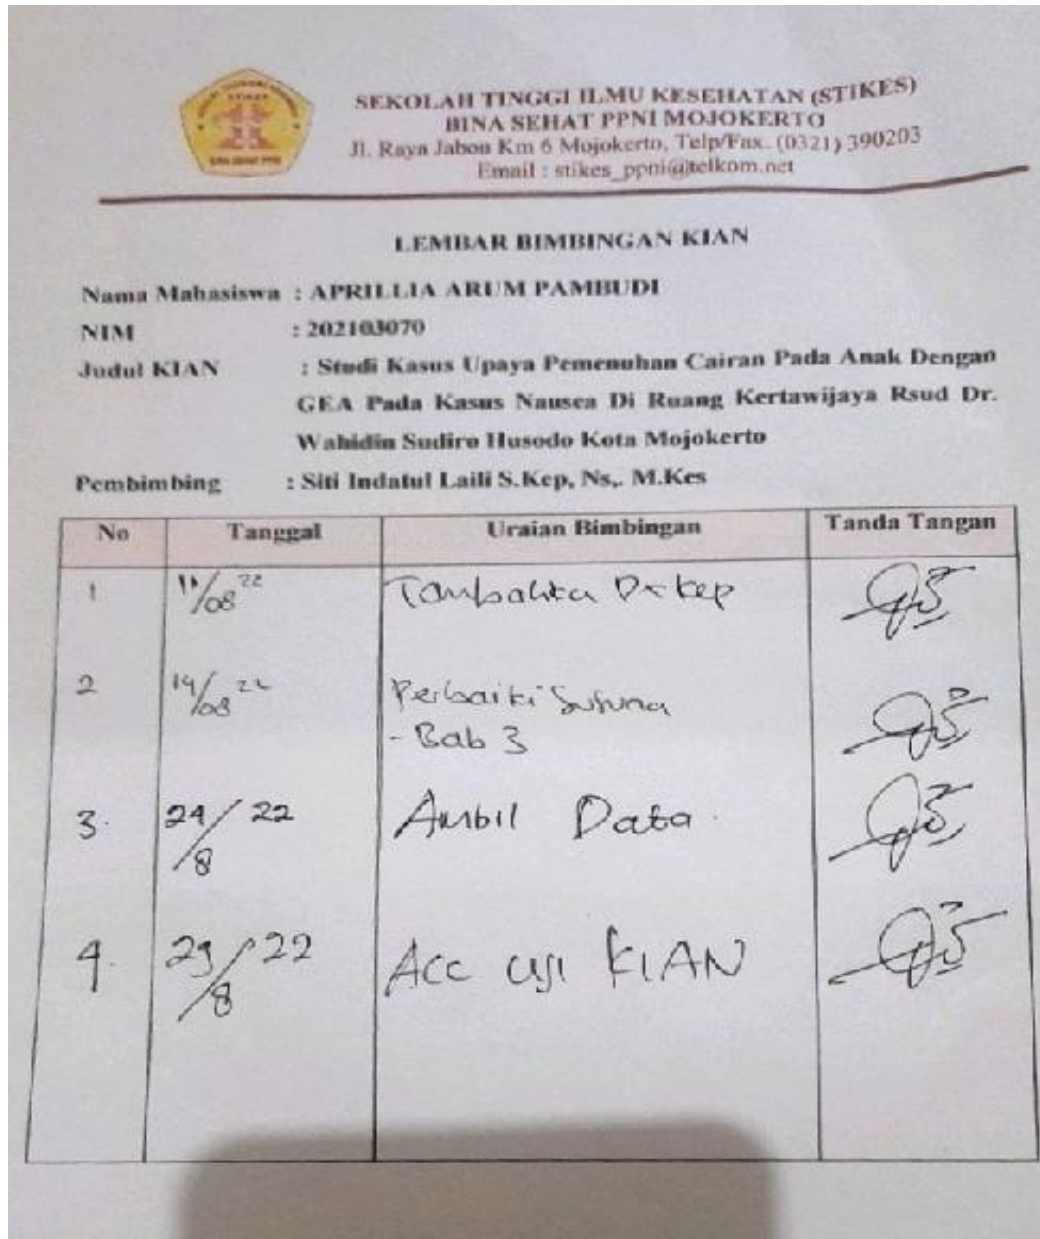 SEKOLAH TINGGI ILMU KESEHATAN (STIKES)
BINA SEHAT PPNI MOJOKERTO
Jl. Raya Jabon Km 6 Mojokerto, Telp/Fax. (0321) 390203
Email : stikes_ppni@telkom.net
LEMBAR BIMBINGAN KIAN
Nama Mahasiswa : APRILLIA ARUM PAMBUDI
NIM : 202103070
Judul KIAN : Studi Kasus Upaya Pemenuhan Cairan Pada Anak Dengan
GEA Pada Kasus Nausea Di Ruang Kertawijaya Rsud Dr.
Wahidin Sudiro Husodo Kota Mojokerto
Pembimbing : Siti Indatul Laili S.Kep, Ns,. M.Kes
No Tanggal Uraian Bimbingan Tanda Tangan
1 11/08 22
2 14/08 22 Perbaiki
- Bab 3
3. 24/8 22 Ambil Data
4. 29/8 22 Acc uji KIAN